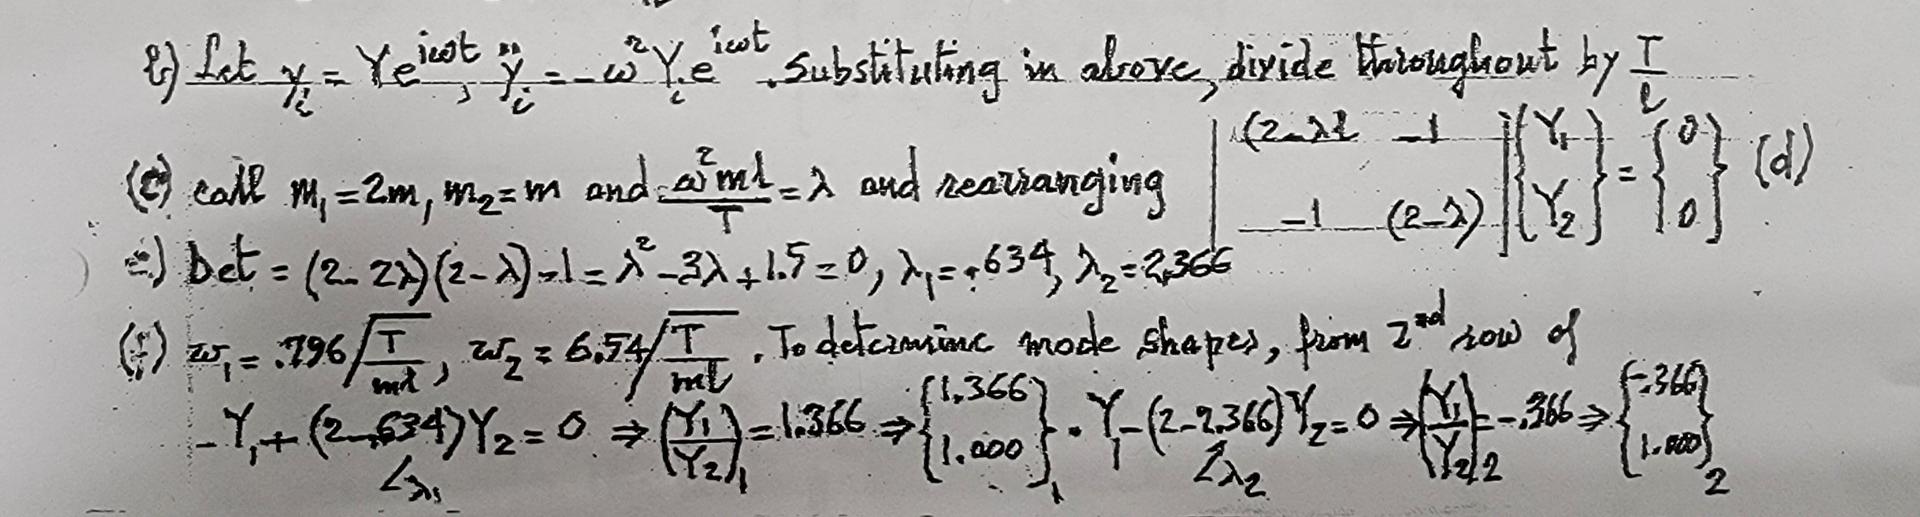 b) Let y_i = Y e^{iωt}, ÿ_i = -ω² Y_i e^{iωt}. Substituting in above, divide throughout by T/l
(c) call m₁ = 2m, m₂ = m and ω²ml/T = λ and rearranging [(2-2λ -1; -1 (2-λ)] {Y₁; Y₂} = {0; 0} (d)
e) Det = (2-2λ)(2-λ)-1 = λ²-3λ+1.5 = 0, λ₁ = .634, λ₂ = 2.366
(f) ω₁ = .796√(T/ml), ω₂ = 6.54√(T/ml). To determine mode shapes, from 2nd row of
-Y₁ + (2-.634)Y₂ = 0 ⇒ (Y₁/Y₂)₁ = 1.366 ⇒ {1.366; 1.000}₁. Y₁-(2-2.366)Y₂ = 0 ⇒ (Y₁/Y₂)₂ = -.366 ⇒ {-.366; 1.000}₂
∠λ₁ ∠λ₂